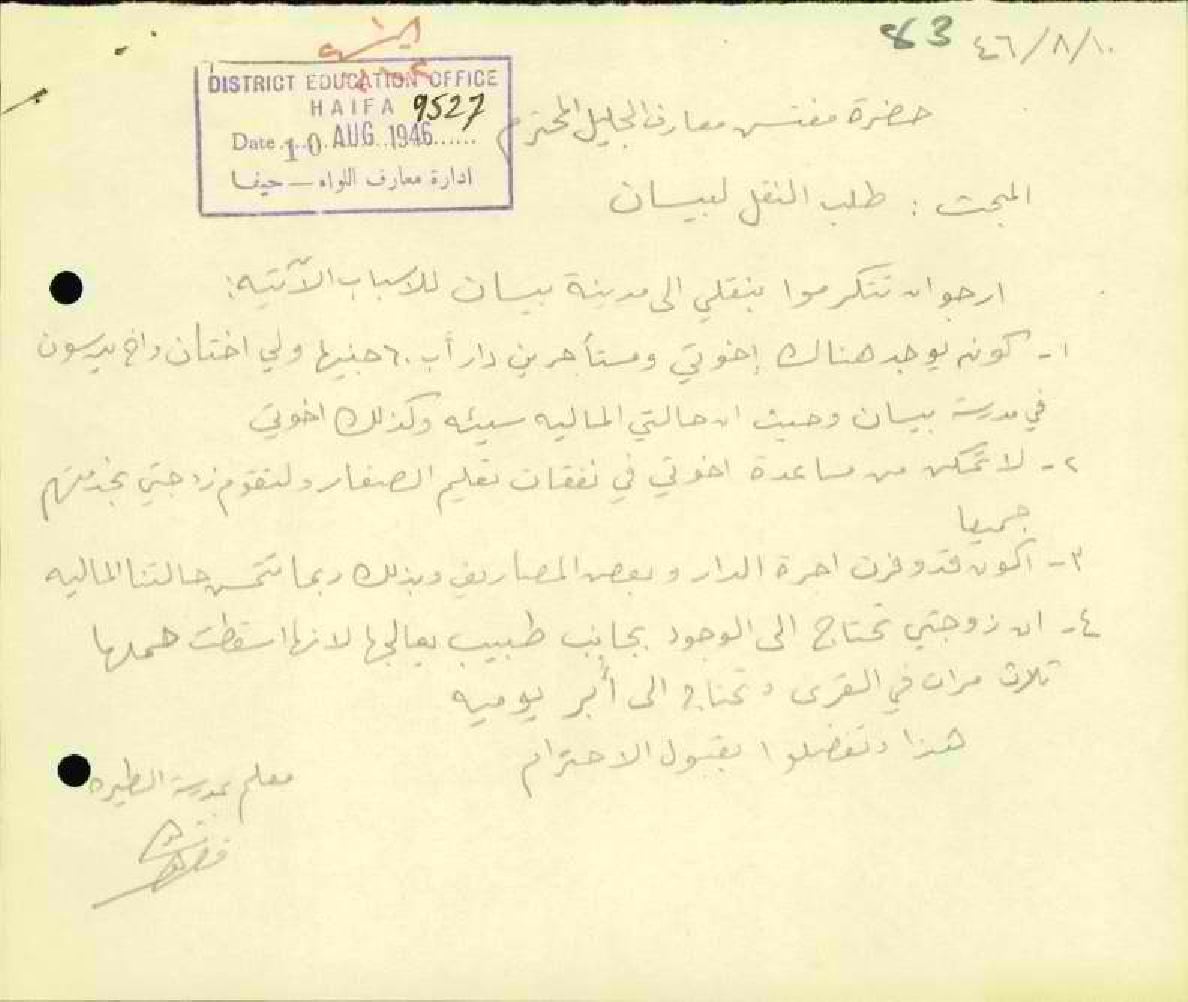 83 ٤٦/٨/١٠
DISTRICT EDUCATION OFFICE
HAIFA 9527
Date 10 AUG 1946
ادارة معارف اللواء – حيفا
حضرة مفتش معارف الجليل المحترم
المبحث : طلب النقل لبيسان
ارجو ان تتكرموا بنقلي الى مدينة بيسان للاسباب الآتية:
١- كونه يوجد هناك إخوتي ومستأجرين دار أب ٦٠ جنيها ولي اختان واخ يدرسون
في مدرسة بيسان وحيث ان حالتي الماليه سيئه وكذلك اخوتي
٢- لأتمكن من مساعدة اخوتي في نفقات تعليم الصغار ولتقوم زوجتي بخدمتهم
جميعا
٣- اكون قد وفرت اجرة الدار وبعض المصاريف وبذلك ربما تتحسن حالتنا الماليه
٤- ان زوجتي تحتاج الى الوجود بجانب طبيب يعالجها لانها اسقطت حملها
ثلاث مرات في القرى وتحتاج الى أبر يوميه
هذا وتفضلوا بقبول الاحترام
معلم بمدرسة الطيره